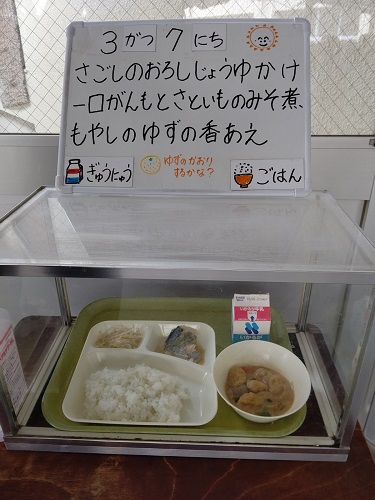 3 がつ 7 にち
さごしのおろしじょうゆかけ
一口がんもとさといものみそ煮、
もやしのゆずの香あえ
ぎゅうにゅう
ゆずのかおり
するかな？
ごはん